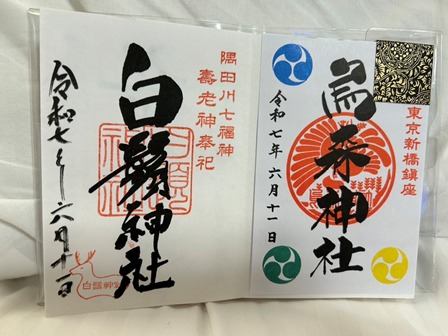 東京新橋鎮座
烏森神社
令和七年六月十一日
隅田川七福神
壽老神奉祀
白鬚神社
令和七年六月十一日
白鬚神社